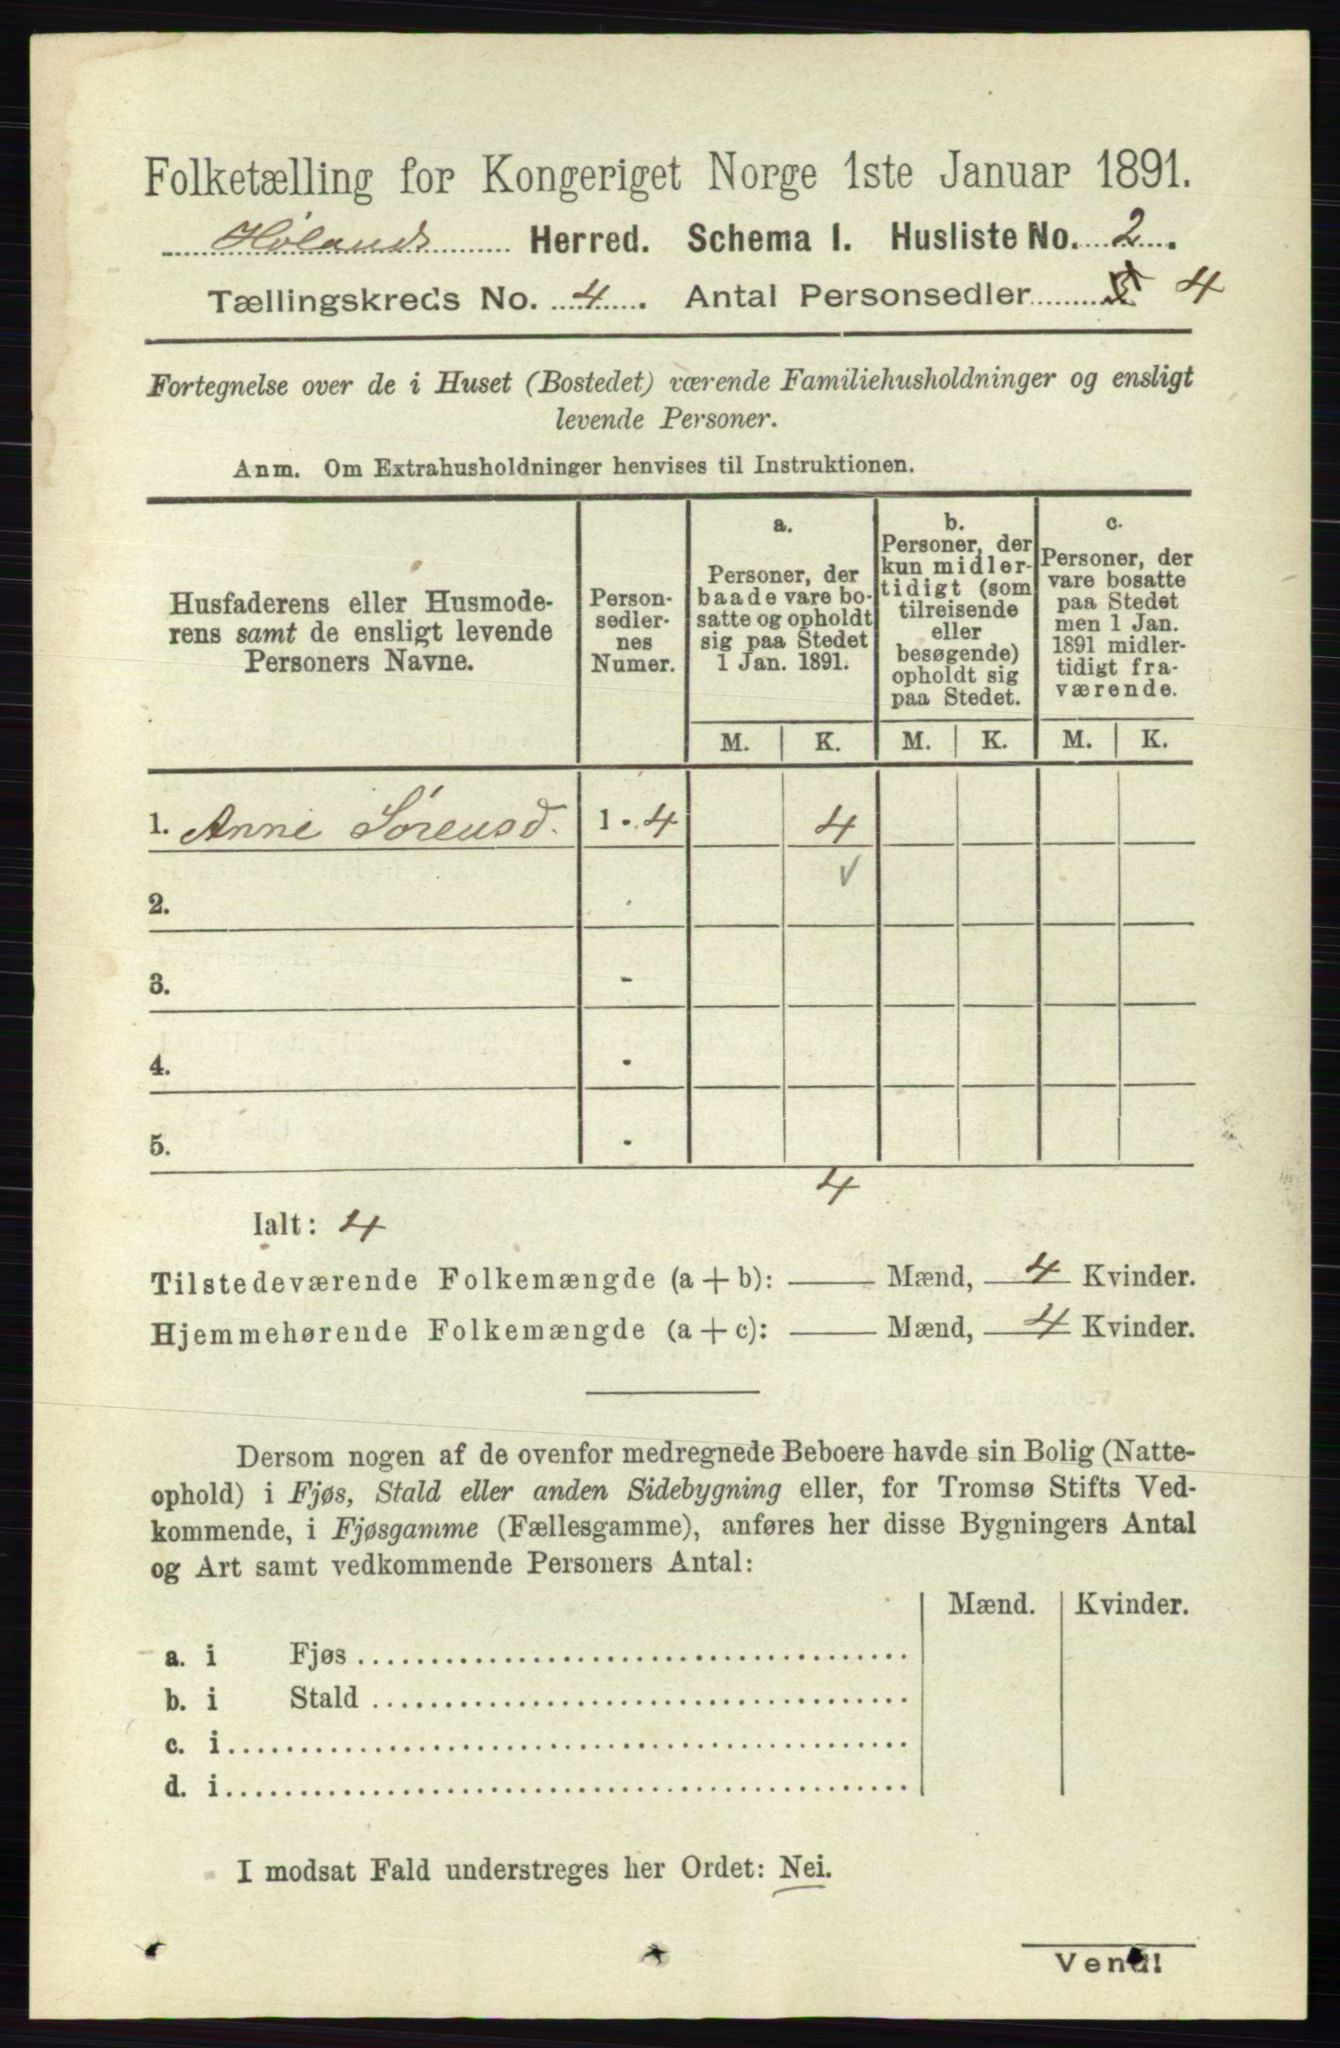 Folketælling for Kongeriget Norge 1ste Januar 1891.
Hølands Herred. Schema I. Husliste No. 2.
Tællingskreds No. 4. Antal Personsedler 5 4
Fortegnelse over de i Huset (Bostedet) værende Familiehusholdninger og ensligt
levende Personer.
Anm. Om Extrahusholdninger henvises til Instruktionen.
Husfaderens eller Husmode-
rens samt de ensligt levende
Personers Navne.
Person-
sedler-
nes
Numer.
a.
Personer, der
baade vare bo-
satte og opholdt
sig paa Stedet
1 Jan. 1891.
b.
Personer, der
kun midler-
tidigt (som
tilreisende
eller
besøgende)
opholdt sig
paa Stedet.
c.
Personer, der
vare bosatte
paa Stedet
men 1 Jan.
1891 midler-
tidigt fra-
værende.
M. K. M. K. M. K.
1. Anne Sørensd. 1 - 4 4
2.
3. -
4. -
5. -
4
Ialt: 4
Tilstedeværende Folkemængde (a + b): — Mænd, 4 Kvinder.
Hjemmehørende Folkemængde (a + c): — Mænd, 4 Kvinder.
Dersom nogen af de ovenfor medregnede Beboere havde sin Bolig (Natte-
ophold) i Fjøs, Stald eller anden Sidebygning eller, for Tromsø Stifts Ved-
kommende, i Fjøsgamme (Fællesgamme), anføres her disse Bygningers Antal
og Art samt vedkommende Personers Antal:
Mænd. Kvinder.
a. i Fjøs
b. i Stald
c. i
d. i
I modsat Fald understreges her Ordet: Nei.
Vend!